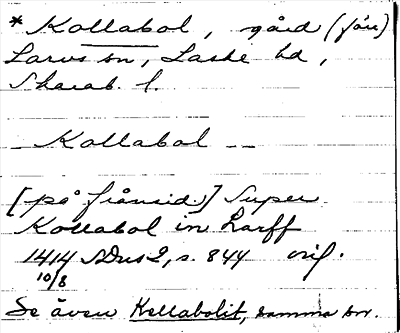 * Kollabol, gård (förr)
Larvs sn, Laske hd,
Skarab. l.
Kollabol
[på frånsid.] Super
Kollabol in Larff
1414 10/8 SDns 2, s. 844 orig.
Se även Kellabolit, samma sn.